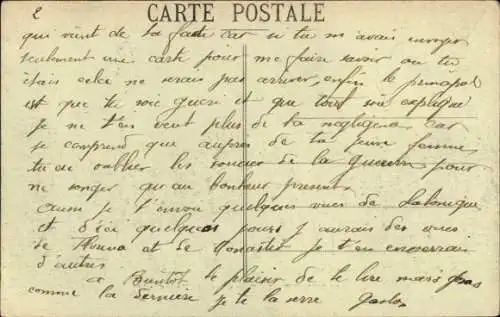 2 CARTE POSTALE
qui vient de ta faute car si tu m'avais envoyer
seulement une carte pour me faire savoir ou tu
étais cela ne serais pas arriver, enfin le principal
est que tu sois gueri et que tout soit expliqué
je ne t'en veut plus de ta negligence car
je comprend que aupres de ta jeune femme
tu ai oublier les soucier de la guerre pour
ne songer qu'au bonheur present.
Aussi je t'envoi quelques vues de Salonique
et d'ici quelques jours j'aurais des vues
de Florina et de Monastir je t'en enverrais
d'autres
a Bientôt le plaisir de te lire mais pas
comme la derniere je te la serre Gaston